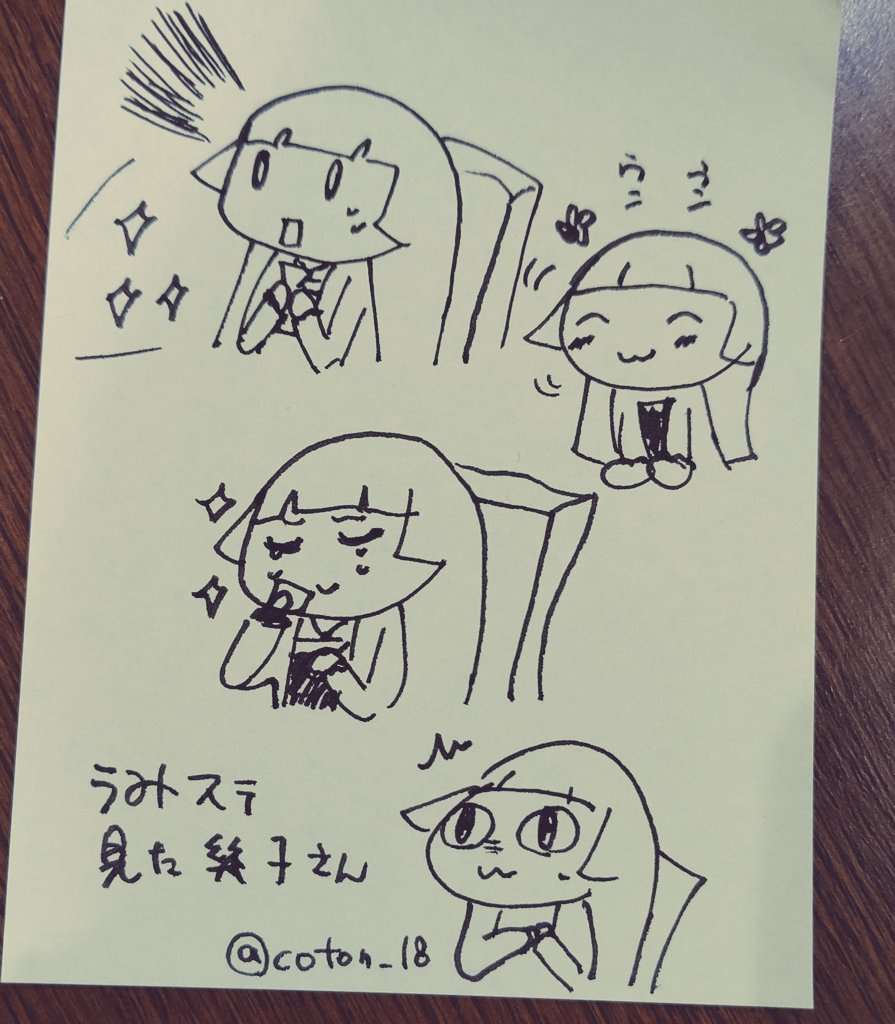 うみステ
見た幾子さん
@coton_18